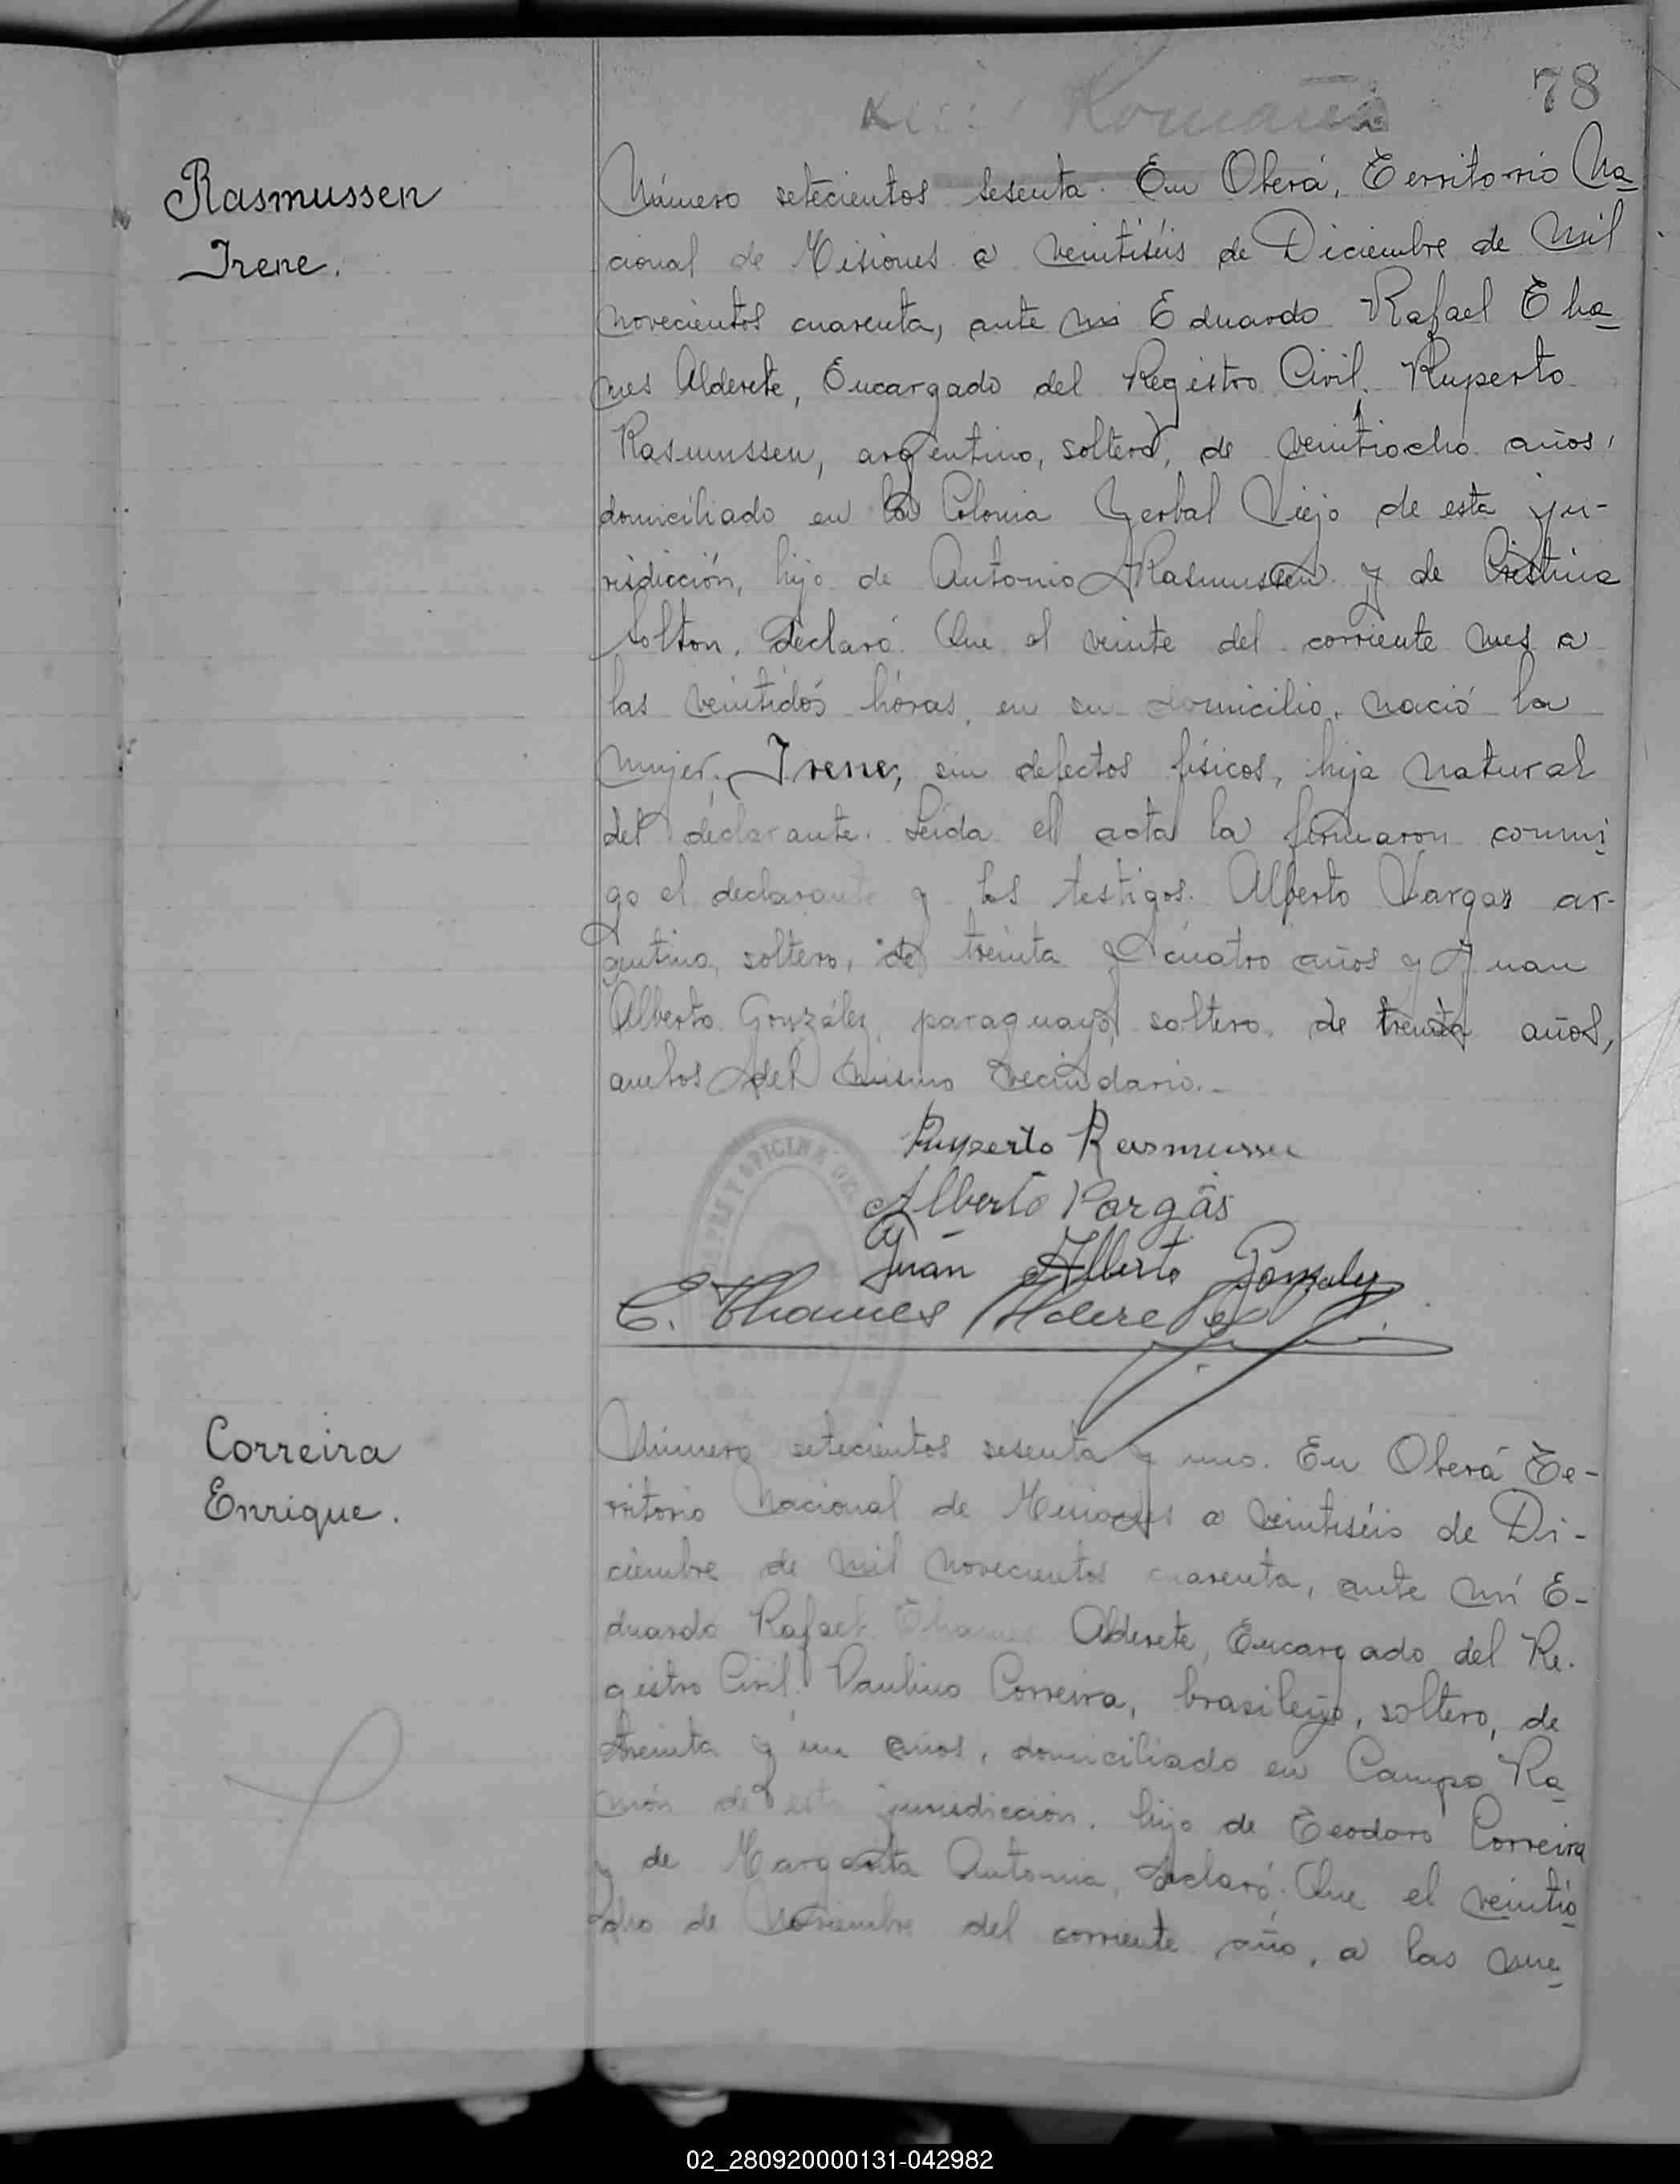 78
Rasmussen
Irene.
Número setecientos sesenta. En Oberá, Territorio Na
cional de Misiones a veintiséis de Diciembre de mil
novecientos cuarenta, ante mi Eduardo Rafael Tha
mes Alderete, Encargado del Registro Civil. Ruperto
Rasmussen, argentino, soltero, de veintiocho años,
domiciliado en la Colonia Yerbal Viejo de esta ju-
risdicción, hijo de Antonio Rasmussen y de Cristina
Solton, declaró: Que el veinte del corriente mes a
las veintidós horas, en su domicilio, nació la
mujer, Irene, sin defectos físicos, hija natural
del declarante. Leída el acta la firmaron conmi
go el declarante y los testigos. Alberto Vargas ar-
gentino, soltero, de treinta y cuatro años y Juan
Alberto González, paraguayo, soltero, de treinta años,
ambos del mismo vecindario.-
Ruperto Rasmussen
Alberto Vargas
Juan Alberto Gonzalez
E. Thames Alderete
Correira
Enrique.
Número setecientos sesenta y uno. En Oberá Te-
rritorio Nacional de Misiones a veintiséis de Di-
ciembre de mil novecientos cuarenta, ante mí E-
duardo Rafael Thames Alderete, Encargado del Re-
gistro Civil. Paulino Correira, brasileño, soltero, de
treinta y un años, domiciliado en Campo Ra
món de esta jurisdicción, hijo de Teodoro Correira
y de Margarita Antonia, declaró: Que el veintio
cho de Noviembre del corriente año, a las nue
02_280920000131-042982